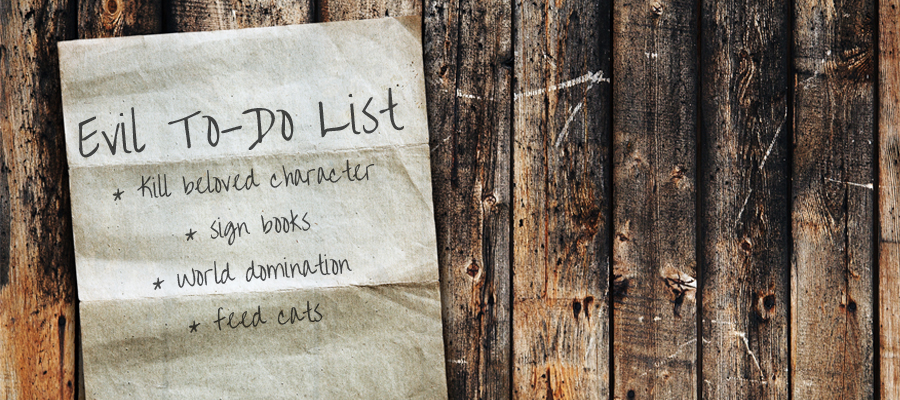 Evil To-Do List
* Kill beloved character
* sign books
* world domination
* feed cats